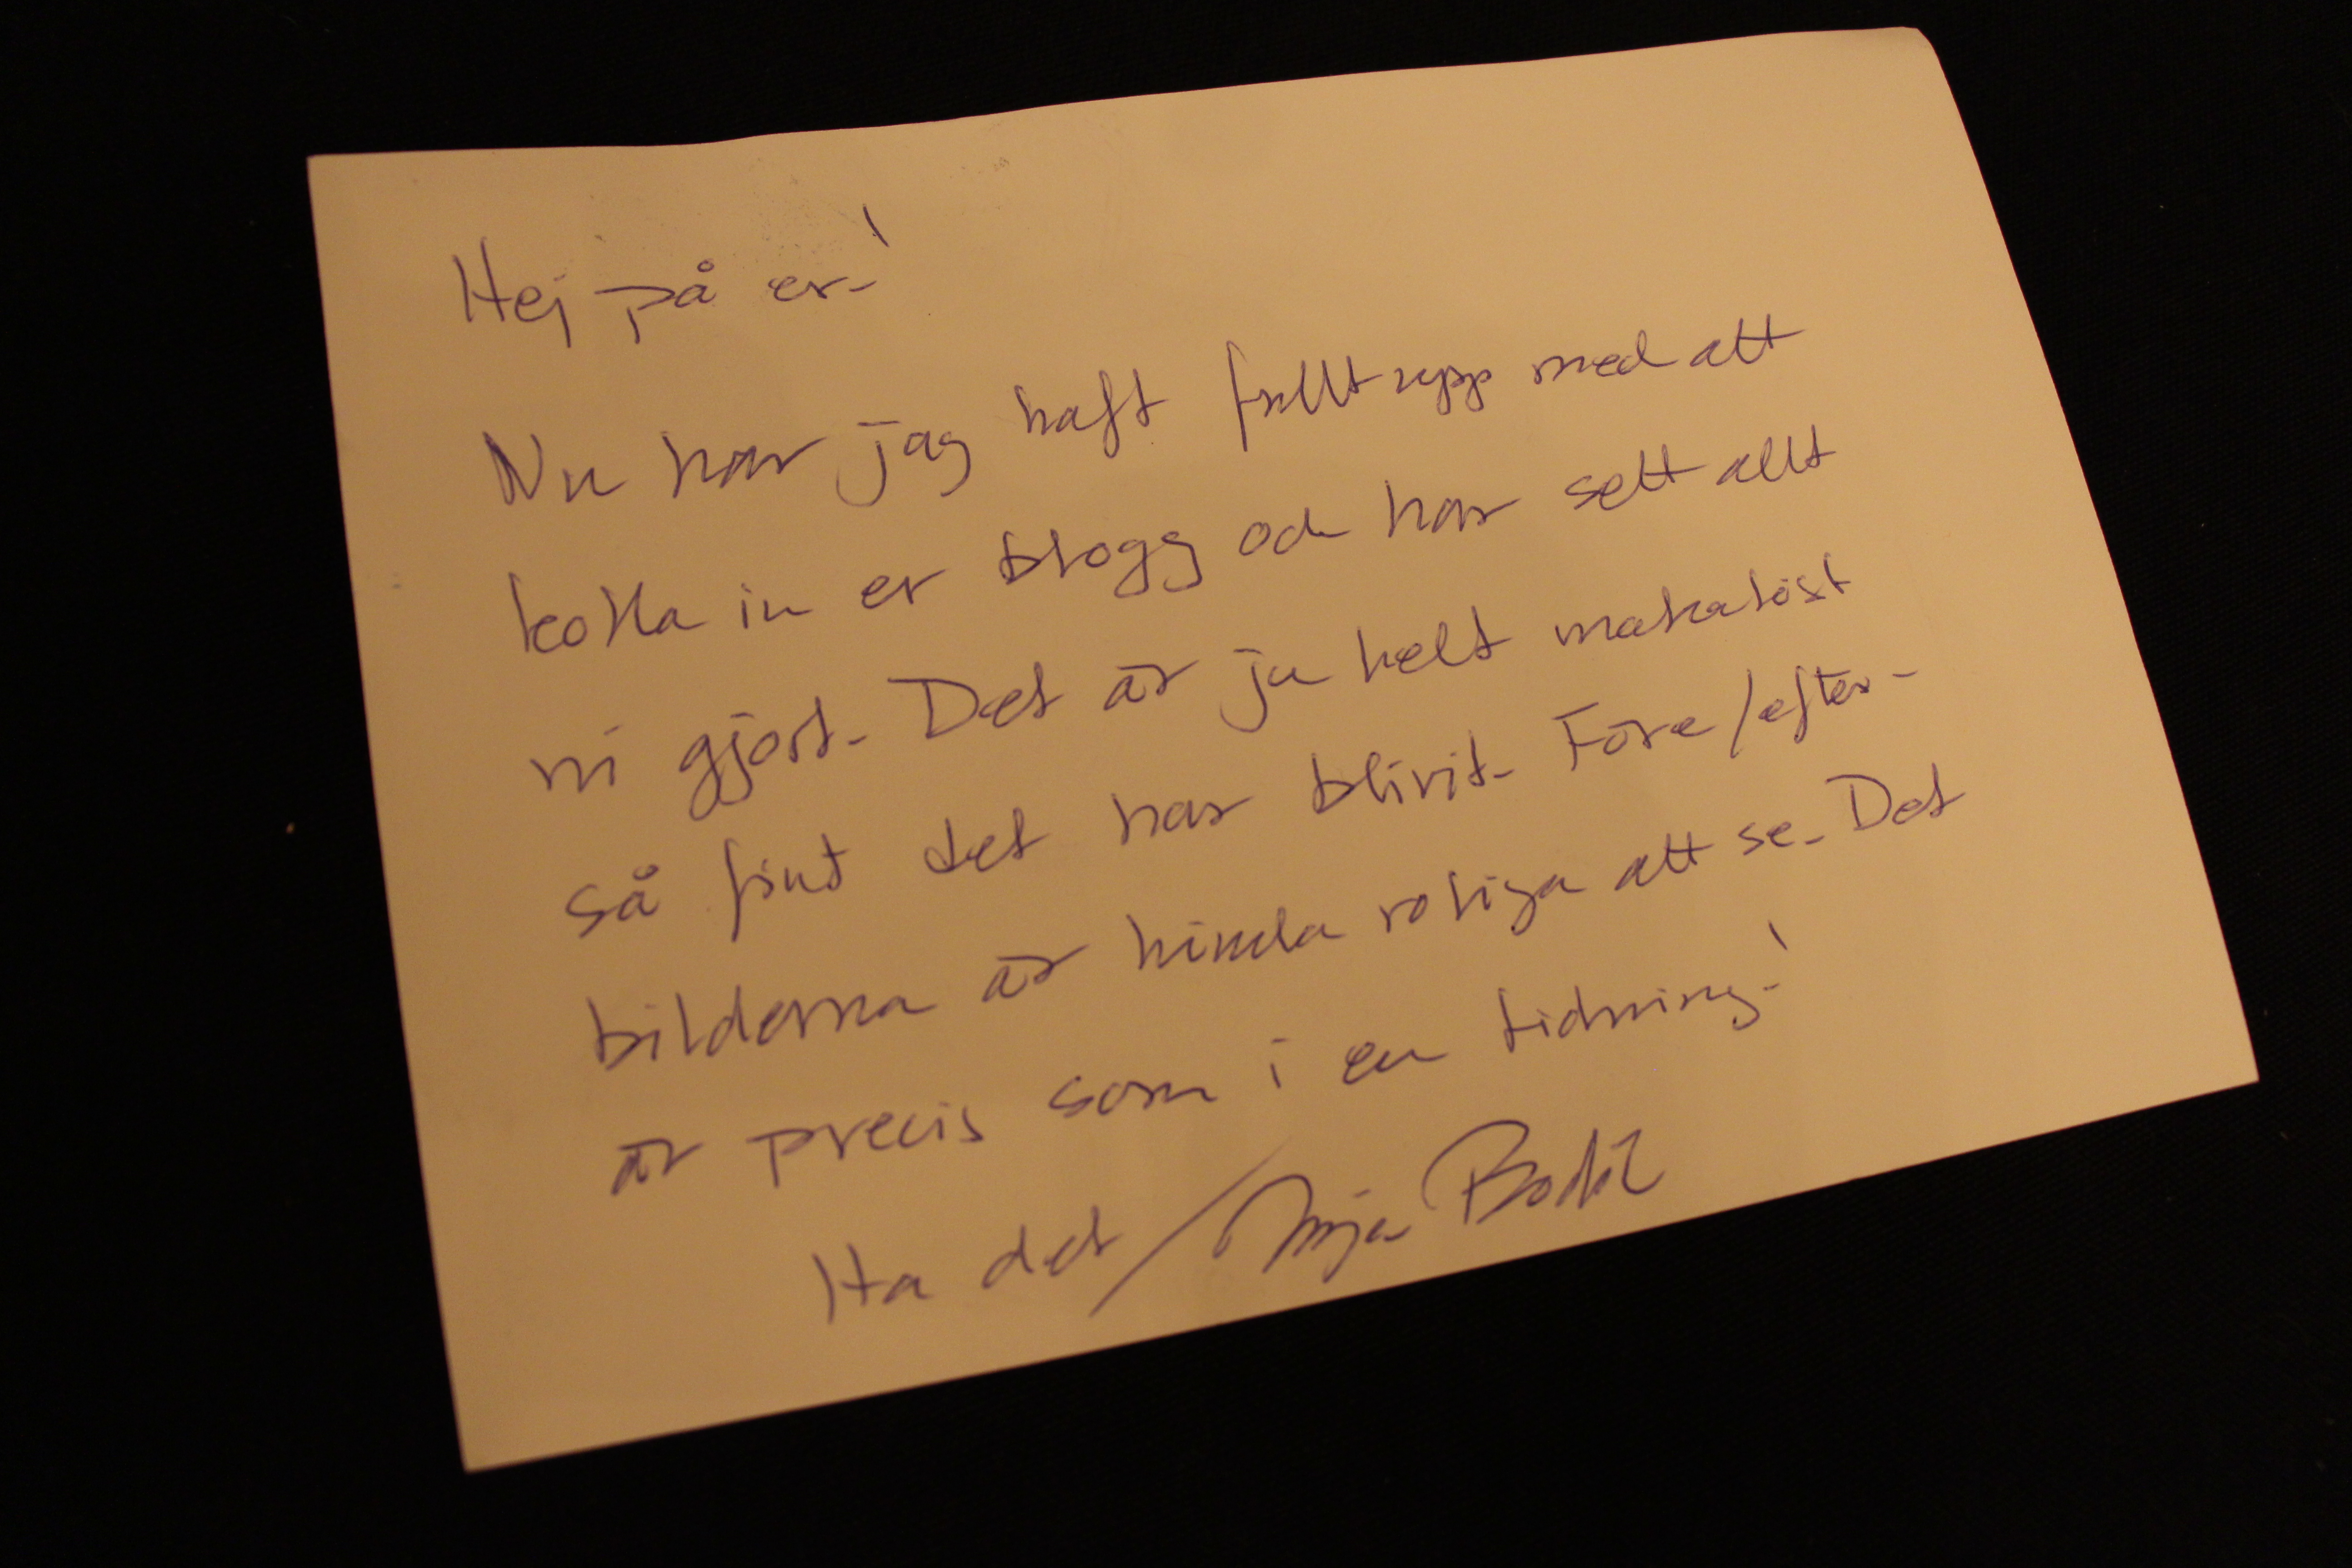 Hej på er!
Nu har jag haft fullt upp med att
kolla in er blogg och har sett allt
ni gjort. Det är ju helt makalöst
så fint det har blivit. Före/efter-
bilderna är himla roliga att se. Det
är precis som i en tidning!
Ha det /